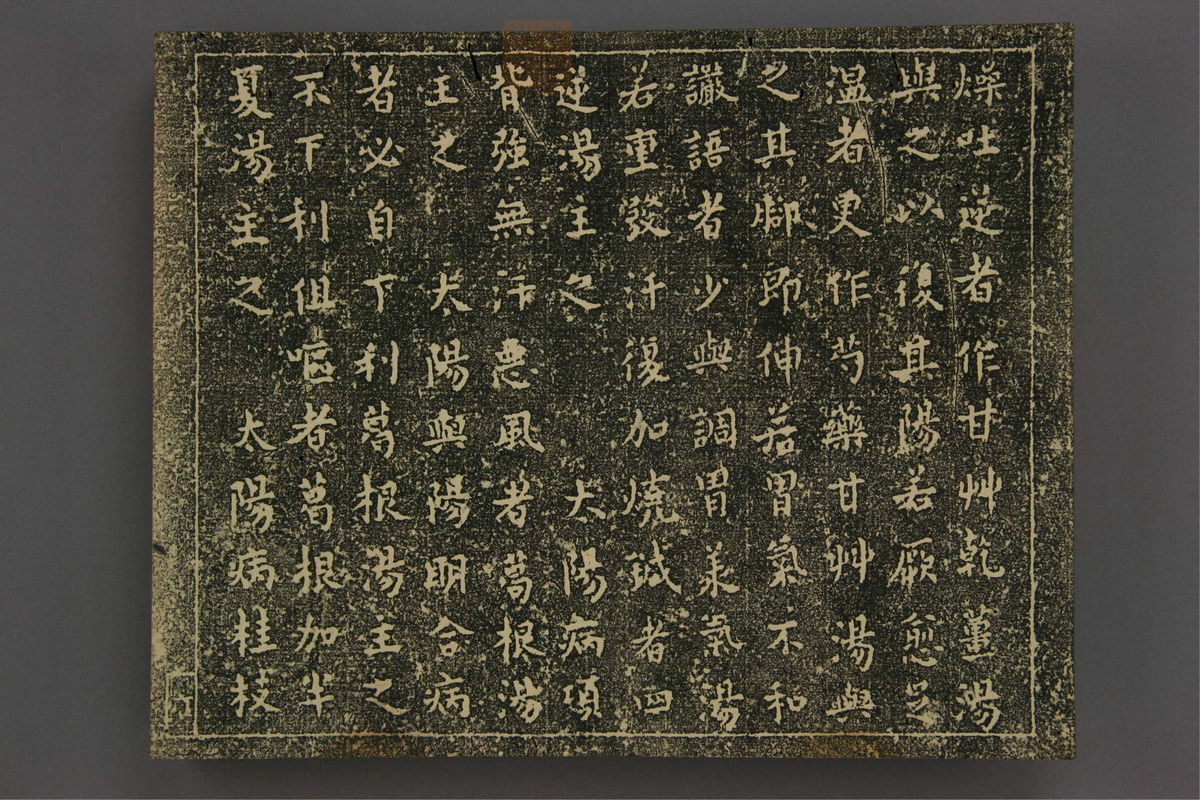 燥吐逆者作甘艸乾薑湯
與之以復其陽若厥愈足
温者更作芍藥甘艸湯與
之其脚即伸若胃氣不和
讝語者少與調胃承氣湯
若重發汗復加燒鍼者四
逆湯主之　太陽病項
背強無汗惡風者葛根湯
主之　太陽與陽明合病
者必自下利葛根湯主之
不下利但嘔者葛根加半
夏湯主之　太陽病桂枝